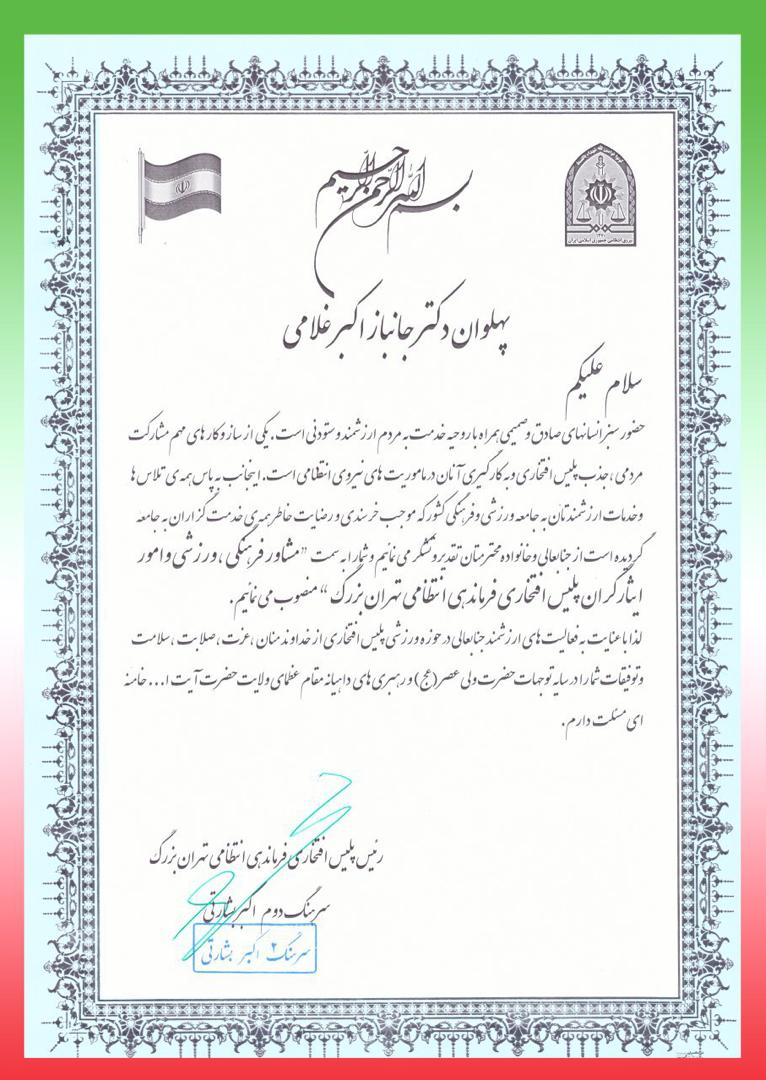 بسم الله الرحمن الرحیم
نیروی انتظامی جمهوری اسلامی ایران
پهلوان دکتر جانباز اکبر غلامی
سلام علیکم
حضور سبز انسانهای صادق و صمیمی همراه با روحیه خدمت به مردم ارزشمند و ستودنی است. یکی از ساز و کار های مهم مشارکت
مردمی، جذب پلیس افتخاری و به کارگیری آنان در ماموریت های نیروی انتظامی است. اینجانب به پاس همه ی تلاش ها
و خدمات ارزشمندتان به جامعه ورزشی و فرهنگی کشور که موجب خرسندی و رضایت خاطر همه ی خدمت گزاران به جامعه
گردیده است از جنابعالی و خانواده محترمتان تقدیر و تشکر می نمائیم و شما را به سمت "مشاور فرهنگی، ورزشی و امور
ایثارگران پلیس افتخاری فرماندهی انتظامی تهران بزرگ" منصوب می نمائیم.
لذا با عنایت به فعالیت های ارزشمند جنابعالی در حوزه ورزشی پلیس افتخاری از خداوند منان، عزت، صلابت، سلامت
و توفیقات شما را در سایه توجهات حضرت ولی عصر (عج) و رهبری های داهیانه مقام عظمای ولایت حضرت آیت ا... خامنه
ای مسئلت دارم.
رئیس پلیس افتخاری فرماندهی انتظامی تهران بزرگ
سرهنگ دوم اکبر بشارتی
سرهنگ ۲ اکبر بشارتی